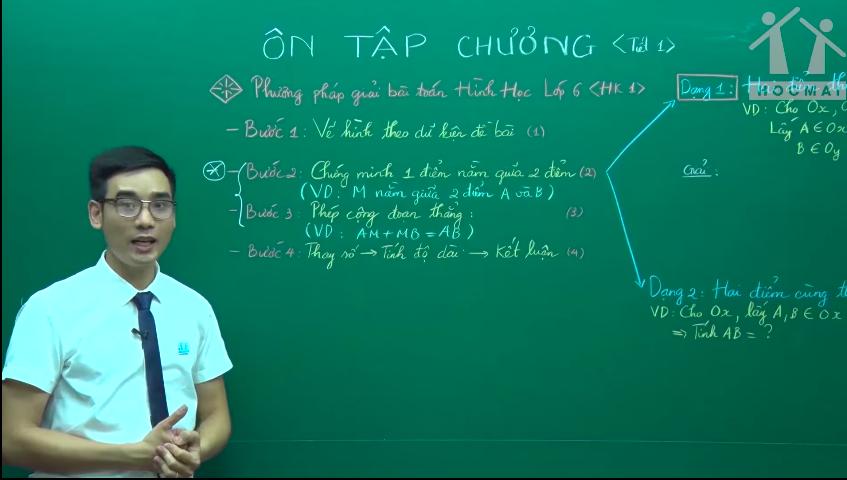 ÔN TẬP CHƯƠNG <Tiết 1>
Phương pháp giải bài toán Hình Học Lớp 6 <HK1>
- Bước 1: Vẽ hình theo dữ kiện đề bài (1)
- Bước 2: Chứng minh 1 điểm nằm giữa 2 điểm (2)
(VD: M nằm giữa 2 điểm A và B)
- Bước 3: Phép cộng đoạn thẳng: (3)
(VD: AM + MB = AB)
- Bước 4: Thay số → Tính độ dài → Kết luận (4)
Dạng 1: Hai điểm
HOCMAI
VD: Cho Ox,
Lấy A ∈ Ox
B ∈ Oy
Giải:
Dạng 2: Hai điểm cùng
VD: Cho Ox, lấy A, B ∈ Ox
⇒ Tính AB = ?